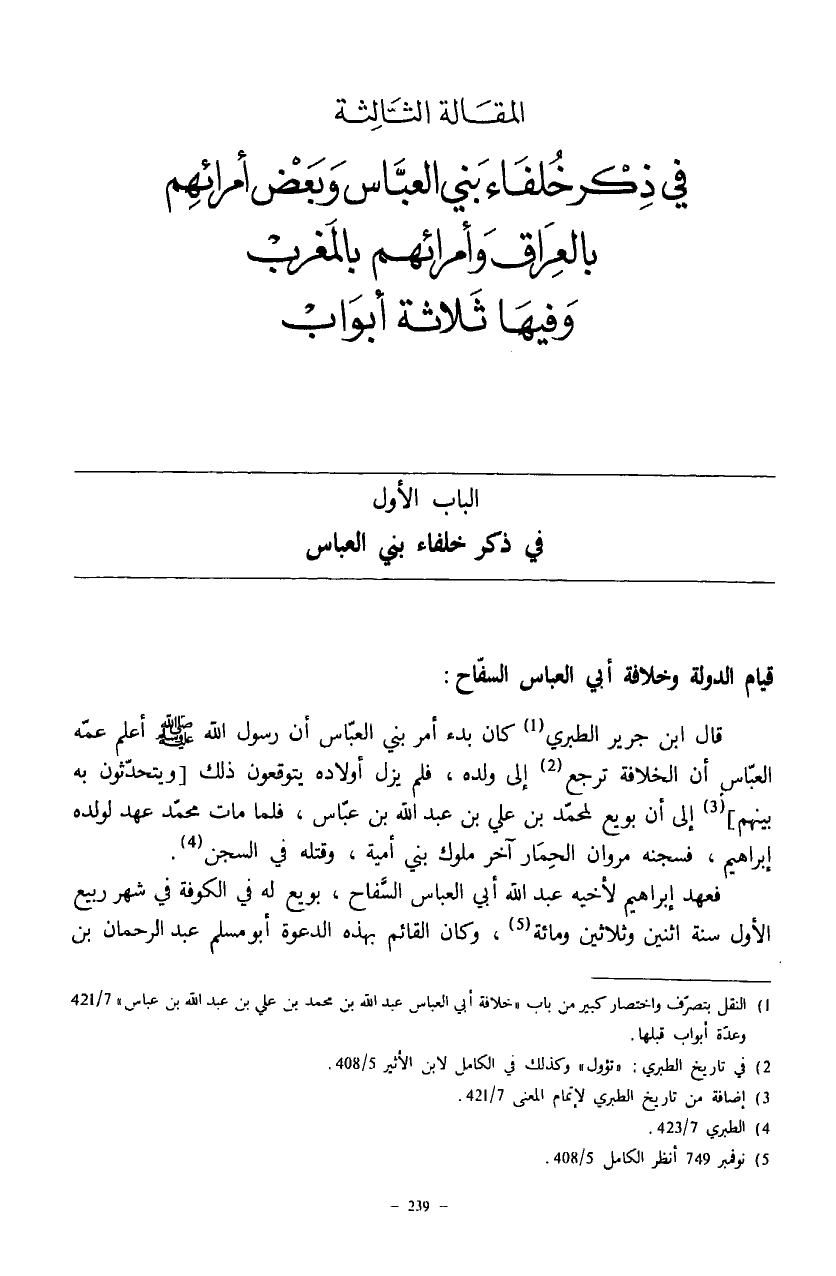 المقَالة الثَالِثة
في ذِكْر خُلفَاء بَني العبَّاس وَبَعْض أمرائِهِم
بالعِرَاق وَأمرائهم بالمَغربْ
وَفيهَا ثَلاثة أبوَابْ
الباب الأول
في ذكر خلفاء بني العباس
قيام الدولة وخلافة أبي العباس السفّاح :
قال ابن جرير الطبري(1) كان بدء أمر بني العبّاس أن رسول الله ﷺ أعلم عمّه
العبّاس أن الخلافة ترجع(2) إلى ولده ، فلم يزل أولاده يتوقعون ذلك [ويتحدّثون به
بينهم](3) إلى أن بويع لمحمّد بن علي بن عبد الله بن عبّاس ، فلما مات محمّد عهد لولده
إبراهيم ، فسجنه مروان الحِمَار آخر ملوك بني أمية ، وقتله في السجن(4).
فعهد إبراهيم لأخيه عبد الله أبي العباس السَّفاح ، بويع له في الكوفة في شهر ربيع
الأول سنة اثنين وثلاثين ومائة(5) ، وكان القائم بهذه الدعوة أبو مسلم عبد الرحمان بن
1) النقل بتصرّف واختصار كبير من باب «خلافة أبي العباس عبد الله بن محمد بن علي بن عبد الله بن عباس» 421/7
وعدّة أبواب قبلها.
2) في تاريخ الطبري : «تؤول» وكذلك في الكامل لابن الأثير 408/5.
3) إضافة من تاريخ الطبري لإتمام المعنى 421/7.
4) الطبري 423/7.
5) نوفمبر 749 أنظر الكامل 408/5.
– 239 –